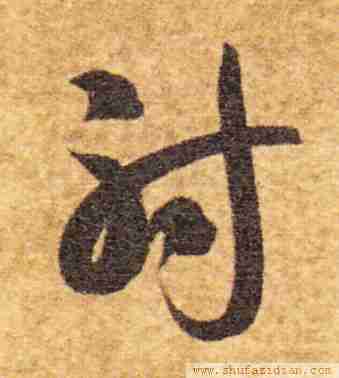 討
www.shufazidian.com